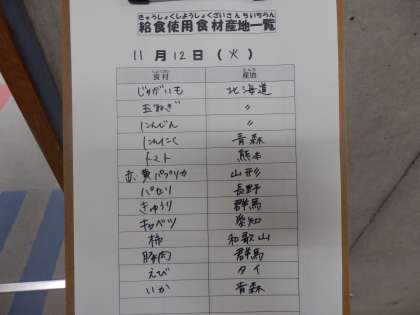 きゅうしょくしようしょくざいさんちいちらん
給食使用食材産地一覧
11月12日(火)
食材 産地
じゃがいも 北海道
玉ねぎ 〃
にんじん 〃
にんにく 青森
トマト 熊本
赤、黄パプリカ 山形
パセリ 長野
きゅうり 群馬
キャベツ 愛知
柿 和歌山
豚肉 群馬
えび タイ
いか 青森